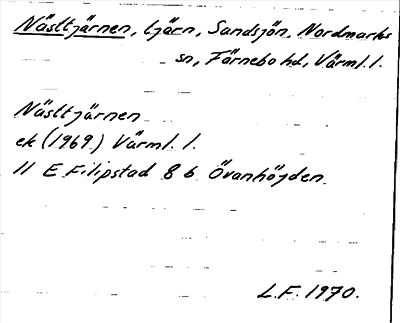 Nästtjärnen, tjärn, Sandsjön, Nordmarks
sn, Färnebo hd, Värml. l.
Nästtjärnen
ek (1969) Värml. l.
11 E Filipstad 8 b Övanhöjden
L.F. 1970.